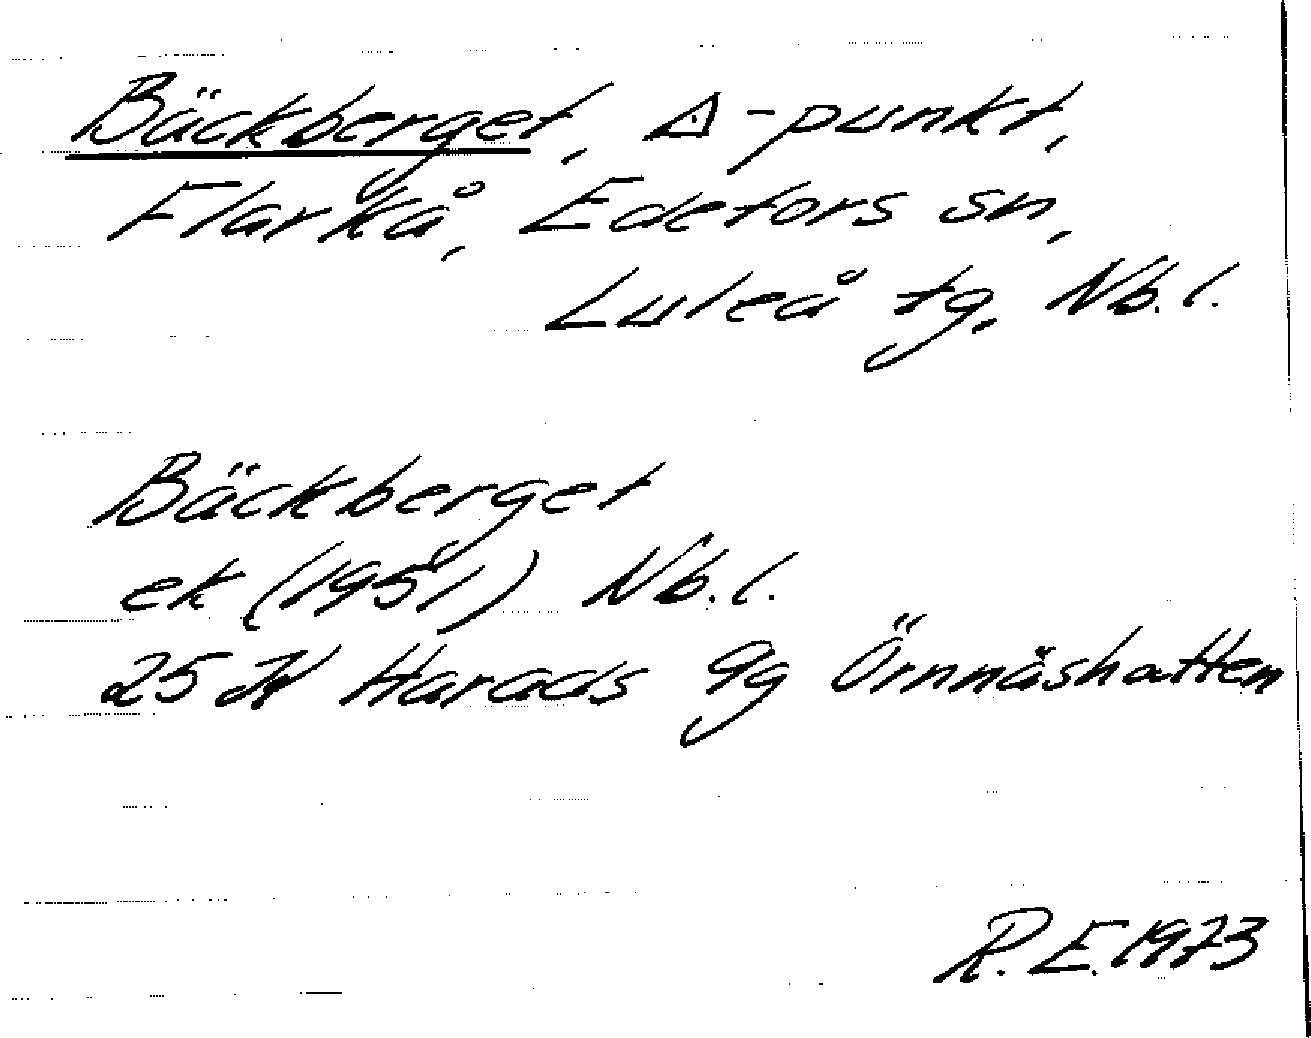 Bäckberget, △-punkt,
Flarkå, Edefors sn,
Luleå tg, Nb.l.
Bäckberget
ek (1951) Nb.l.
25 K Harads 9g Örnnäshatten
R.E.1973